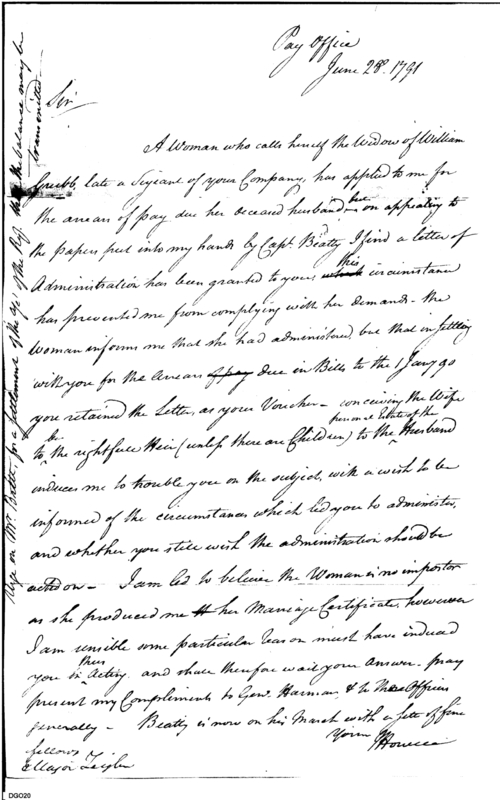 Pay Office
June 28th. 1791
Sir
A Woman who calls herself the Widow of William
Grubb, late a Sergeant of your Company, has applied to me for
the arrears of pay due her deceased husband but on appealing to
the papers put into my hands by Capt. Beatty I find a letter of
Administration has been granted to you, which this circumstance
has prevented me from complying with her demands - the
Woman informs me that she had administered, but that in settling
with you for the Arrears of pay due in Bills to the 1 Jany 90
you retained the Letter, as your Voucher - conceiving the Wife
to be the rightfull Heir (unless there are Children) to the personal Estate of the Husband
induces me to trouble you on the subject, with a wish to be
informed of the circumstances which led you to administer,
and whether you still wish the administration should be
acted on - I am led to believe the Woman is no impostor
as she produced me her Marriage Certificate, however
I am sensible some particular reason must have induced
you in thus Acting, and shall therefore wait your Answer - pray
present my Compliments to Genl. Harmar & to the Officers
generally - Beatty is now on his March with a sett of fine
fellows
Yours
JHowell
Major Zeigler
Urge on Mr. Britt, for a settlement of the age of the Regt. that the balance may be
transmitted
DGO20